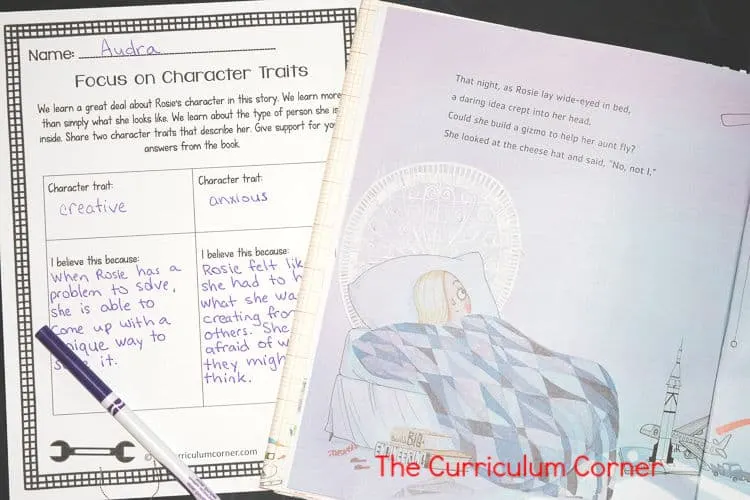 Name: Audra
Focus on Character Traits
We learn a great deal about Rosie's character in this story. We learn more
than simply what she looks like. We learn about the type of person she is
inside. Share two character traits that describe her. Give support for
answers from the book.
Character trait:
creative
I believe this because:
When Rosie has a
problem to solve,
she is able to
come up with a
unique way to
it.
Character trait:
anxious
I believe this because:
Rosie felt
she had to
what she
creating
others. She
afraid of
they
think.
curriculumcorner.com
That night, as Rosie lay wide-eyed in bed,
a daring idea crept into her head.
Could she build a gizmo to help her aunt fly?
She looked at the cheese hat and said, "No, not I."
BIG
ENGINEERING
The Curriculum Corner